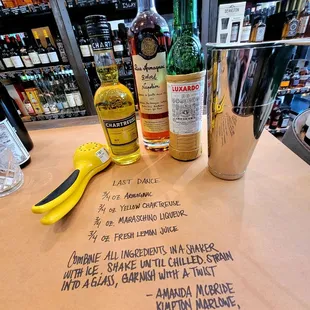 CHARTREUSE
Bas Armagnac
LUXARDO
LAST DANCE
3/4 OZ ARMAGNAC
3/4 OZ YELLOW CHARTREUSE
3/4 OZ MARASCHINO LIQUEUR
3/4 OZ FRESH LEMON JUICE
COMBINE ALL INGREDIENTS IN A SHAKER
WITH ICE. SHAKE UNTIL CHILLED. STRAIN
INTO A GLASS, GARNISH WITH A TWIST
- AMANDA MCBRIDE
KIMPTON MARLOWE,